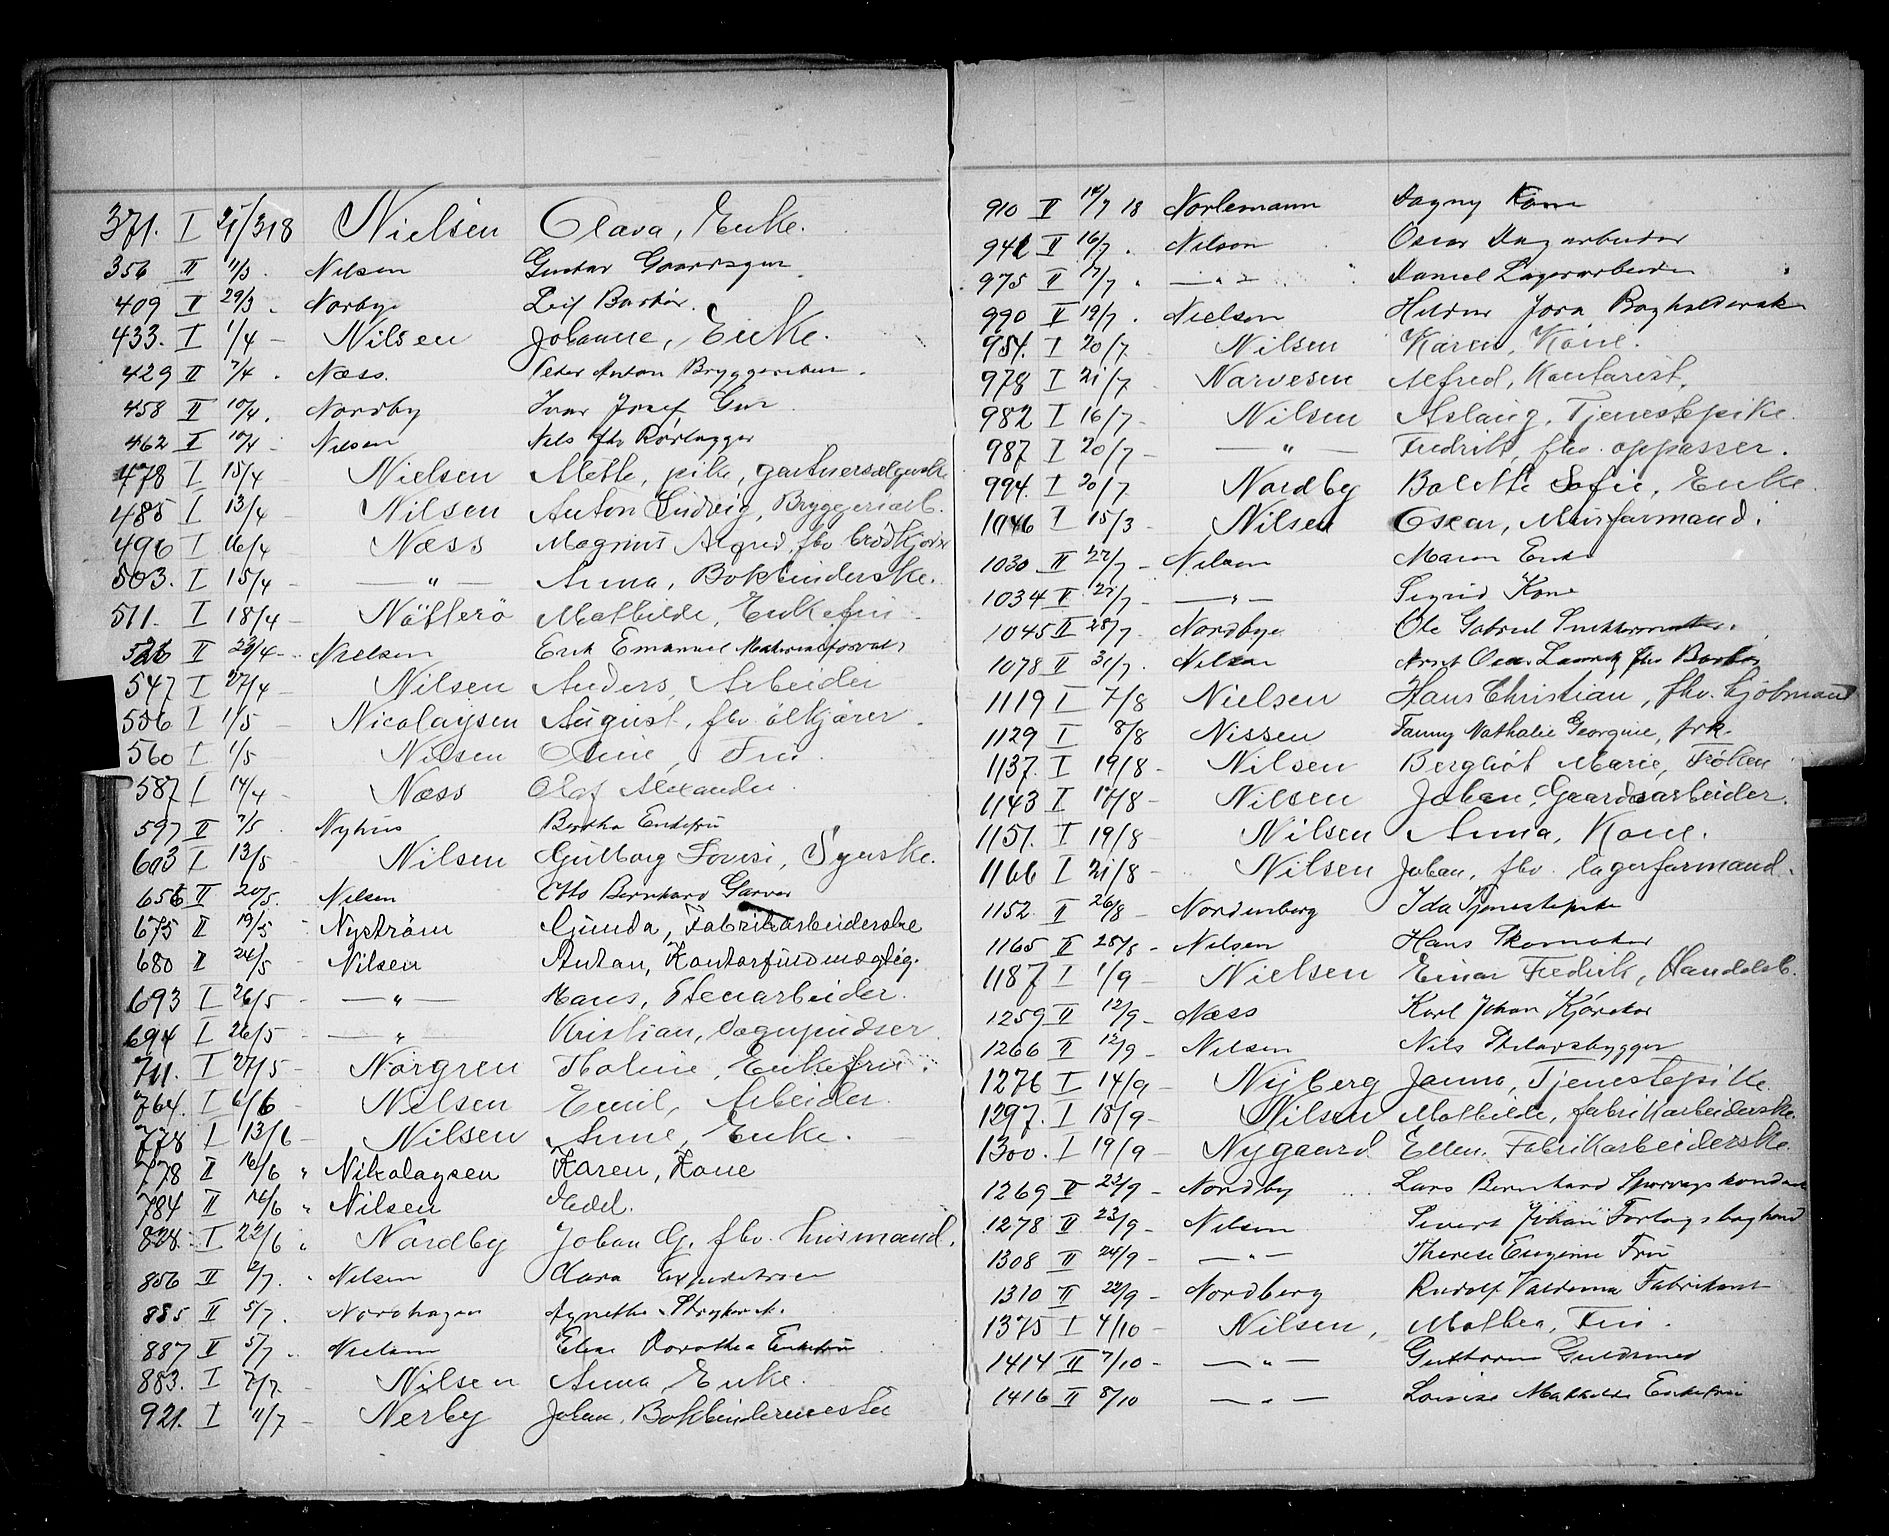 371. I 21/3 18 Nielsen Olava, Enke.
356 II 11/3 . Nilsen Gustav Gaardsgut
409 II 29/3 . Norbye Leif Barbér.
433. I 1/4 - Nilsen Johanne, Enke.
429 II 7/4 . Næss. Peder Anton
458 II 10/4 . Nordby Ivar Josef Gut
462 II 10/4 . Nilsen Nils fhv Rørlægger
478 I 15/4 Nielsen Mette, pike,
485 I 13/4 Nilsen Anton Ludvig, Bryggeriarb.
496 I 16/4 Næss Magnus fhv brødkjører
503. I 15/4 - — " — Anna, Bokbinderske.
511. I 18/4 - Nötterö Mathilde, Enkefru
526 II 23/4 - Nielsen Erik Emanuel Materialforvalt
547 I 27/4 - Nilsen Anders, Arbeider
556 I 1/5 - Nicolaysen August, fhv ölkjörer.
560 I 1/5 Nilsen Oline, Fru.
587 I 14/4 - Næss Olaf Alexander.
597 II 7/5 . Nyhus Bertha Enkefru
603 I 13/5 Nilsen Gulborg Lovise, Syerske.
656 II 20/5. Nilsen Otto Bernhard Garver
675 II 19/5 - Nyström Gunda, Fabrikarbeiderske
680 II 24/5 Nilsen Anton, Kontorfuldmægtig.
693 I 26/5 - — " — Hans, Stenarbeider.
694 I 26/5 - — " Kristian, Vognpudser
711. I 27/5 - Norgren Tholine, Enkefru.
764. I 6/6 - Nilsen Emil, Arbeider.
778 I 13/6 - Nilsen Anne, Enke.
778 II 16/6 " Nikolaysen Karen, Kone
784 II 16/6 " Nilsen Edel.
828. I 22/6 " Nordby Johan G. fhv. husmand.
856 II 2/7. " Nilsen Clara
885 II 5/7. Nordhagen Agnethe
887 II 5/7 . Nielsen Elise Dorothea Enkefru
883. I 7/7. Nilsen Anna, Enke.
921. I 11/7 - Nerby Johan, Bokbindermester
910 II 14/7 18 Norlemann Dagny Kone
942 II 16/7 . Nilsen Oscar Dagarbeider
975 II 17/7 . — " — Daniel Lagerarbeider
990 II 19/7 . Nielsen Hildur Jora Bogholderske
954. I 20/7 - Nilsen Karen, Kone.
978 I 21/7 - Narvesen Alfred, Kontorist.
982 I 16/7 - Nilsen Aslaug, Tjenestepike.
987 I 20/7 - — " — Fredrik, fhv. oppasser.
994. I 20/7 Nordby Bolette Sofie, Enke.
1046 I 15/3 - Nilsen Oscar, Murformand.
1030 II 22/7 - Nilsen Maren Enke
1034 II 21/7 - — " — Sigrid Kone
1045 II 28/7 - Nordbye Ole Gabriel Snekkermester.
1078 II 31/7. Nilsen Arnt fhv Barber
1119 I 7/8 Nielsen Hans Christian, fhv. kjöbmand
1129 I 8/8 Nissen Fanny Nathalie Georgine, frk.
1137. I 19/8 - Nilsen Bergliöt Marie, Fröken
1143 I 17/8 - Nilsen Johan, Gaardsarbeider.
1151. I 19/8 - Nilsen Anna, Kone.
1166 I 21/8 - Nilsen Johan, fhv. lagerformand.
1152 II 26/8 - Nordenberg Ida Tjenestepike
1165 II 28/8 - Nilsen Hans Skomaker
1187 I 1/9 - Nielsen Einar Fredrik, Handelsb.
1259 II 12/9 - Næss Karl Johan Kjørekar
1266 II 12/9 - Nilsen Nils
1276 I 14/9 - Nyberg Janna, Tjenestepike.
1297. I 18/9 - Nilsen Mathilde, fabrikarbeiderske.
1300. I 19/9 - Nygaard Ellen, Fabrikarbeiderske.
1269 II 22/9 - Nordby Lars Bernhard
1278 II 23/9 - Nilsen Sivert Johan
1308 II 24/9 - — " — Therese Eugenie Fru
1310 II 22/9 - Nordberg Rudolf Valdemar Fabrikant
1375 I 4/10 - Nilsen, Mathea, Fru.
1414 II 7/10 - — " — Guthorm Guldsmed
1416 II 8/10 — " — Lovise Mathilde Enkefru